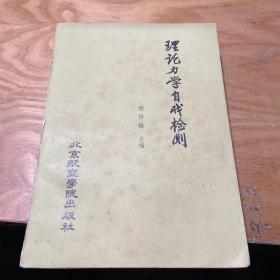 理论力学自我检测
谢传锋 主编
北京航空学院出版社